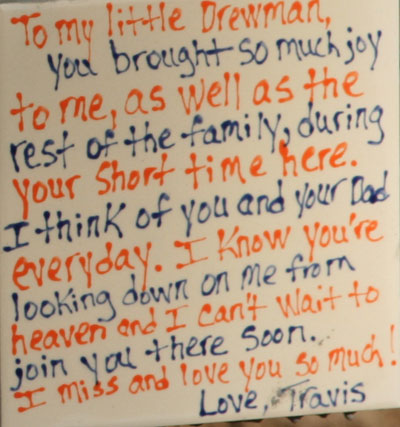 To my little Drewman,
you brought so much joy
to me, as well as the
rest of the family, during
your short time here.
I think of you and your Dad
everyday. I know you're
looking down on me from
heaven and I can't wait to
join you there soon.
I miss and love you so much!
Love, Travis